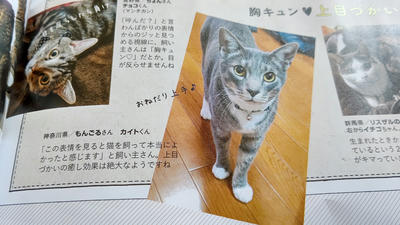 胸キュン♥上目づかい
チョコくん
(マンチカン)
「呼んだ?」と言
わんばかりの表情
からのジッと見つ
める視線に、飼い
主さんは「胸キュ
ン♡」だとか。目
が反らせませんね
おねだり上手♪
神奈川県/もんごるさん カイトくん
「この表情を見ると猫を飼って本当によ
かったと感じます」と飼い主さん。上目
づかいの癒し効果は絶大なようですね
群馬県/リスザルの
右からイチゴちゃん、
生まれたときか
ているという2
がキマっていま